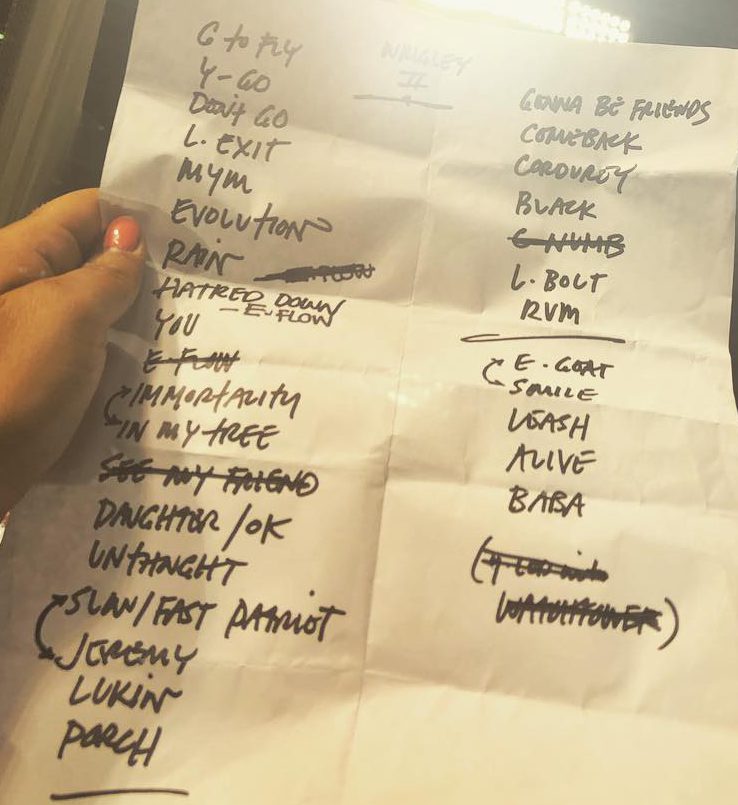 WRIGLEY
II
G to FLY
Y-GO
DON'T GO
L. EXIT
MYM
EVOLUTION
RAIN E-FLOW
HATRED DOWN
- E-FLOW
YOU
E-FLOW
IMMORTALITY
IN MY TREE
SEE MY FRIEND
DAUGHTER/OK
UNTHAUGHT
SLAN/FAST PATRIOT
JEREMY
LUKIN
PORCH
GONNA BE FRIENDS
COMEBACK
CORDUROY
BLACK
C-NUMB
L. BOLT
RVM
E. GOAT
SMILE
LEASH
ALIVE
BABA
WATCHTOWER)